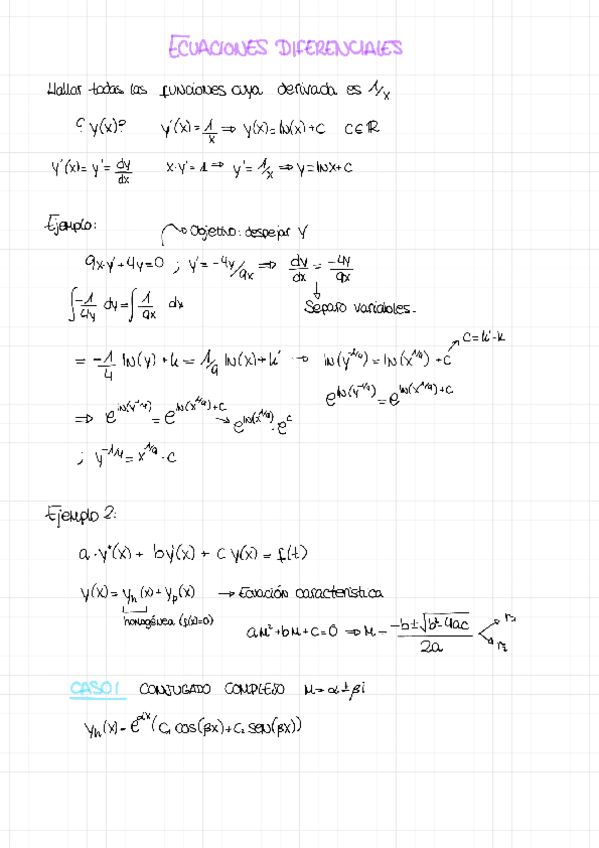 ECUACIONES DIFERENCIALES
Hallar todas las funciones cuya derivada es 1/x
¿y(x)? y'(x)=1/x ⇒ y(x)=ln(x)+C C∈ℝ
y'(x)=y'=dy/dx x·y'=1 ⇒ y'=1/x ⇒ y=lnx+C
Ejemplo:
Objetivo: despejar y
9xy'+4y=0 ; y'=-4y/9x ⇒ dy/dx = -4y/9x
∫-1/4y dy=∫1/9x dx Separo variables.
C=k'-k
= -1/4 ln(y)+k=1/9 ln(x)+k' → ln(y^-1/4)=ln(x^1/9)+C
e^ln(y^-1/4)=e^ln(x^1/9)+C
⇒ e^ln(y^-1/4)=e^ln(x^1/9)+C → e^ln(x^1/9)·e^C
; y^-1/4=x^1/9·C
Ejemplo 2:
a·y''(x)+by'(x)+cy(x)=f(t)
y(x)=yh(x)+yp(x) → Ecuación característica
homogénea (f(x)=0)
aM²+bM+C=0 ⇒ M=-b±√b²-4ac/2a r₁ r₂
CASO 1 CONJUGADO COMPLEJO M=α±βi
yh(x)=e^αx(C₁cos(βx)+C₂sen(βx))